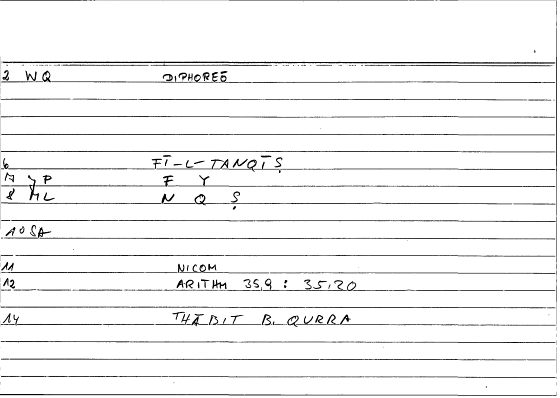 2 WQ DIPHOREŌ
6 FĪ-L-TANQĪṢ
7 P F Y
8 ML N Q Ṣ
10 SA
11 NICOM
12 ARITHM 35,9 : 35,20
14 THĀBIT B. QURRA